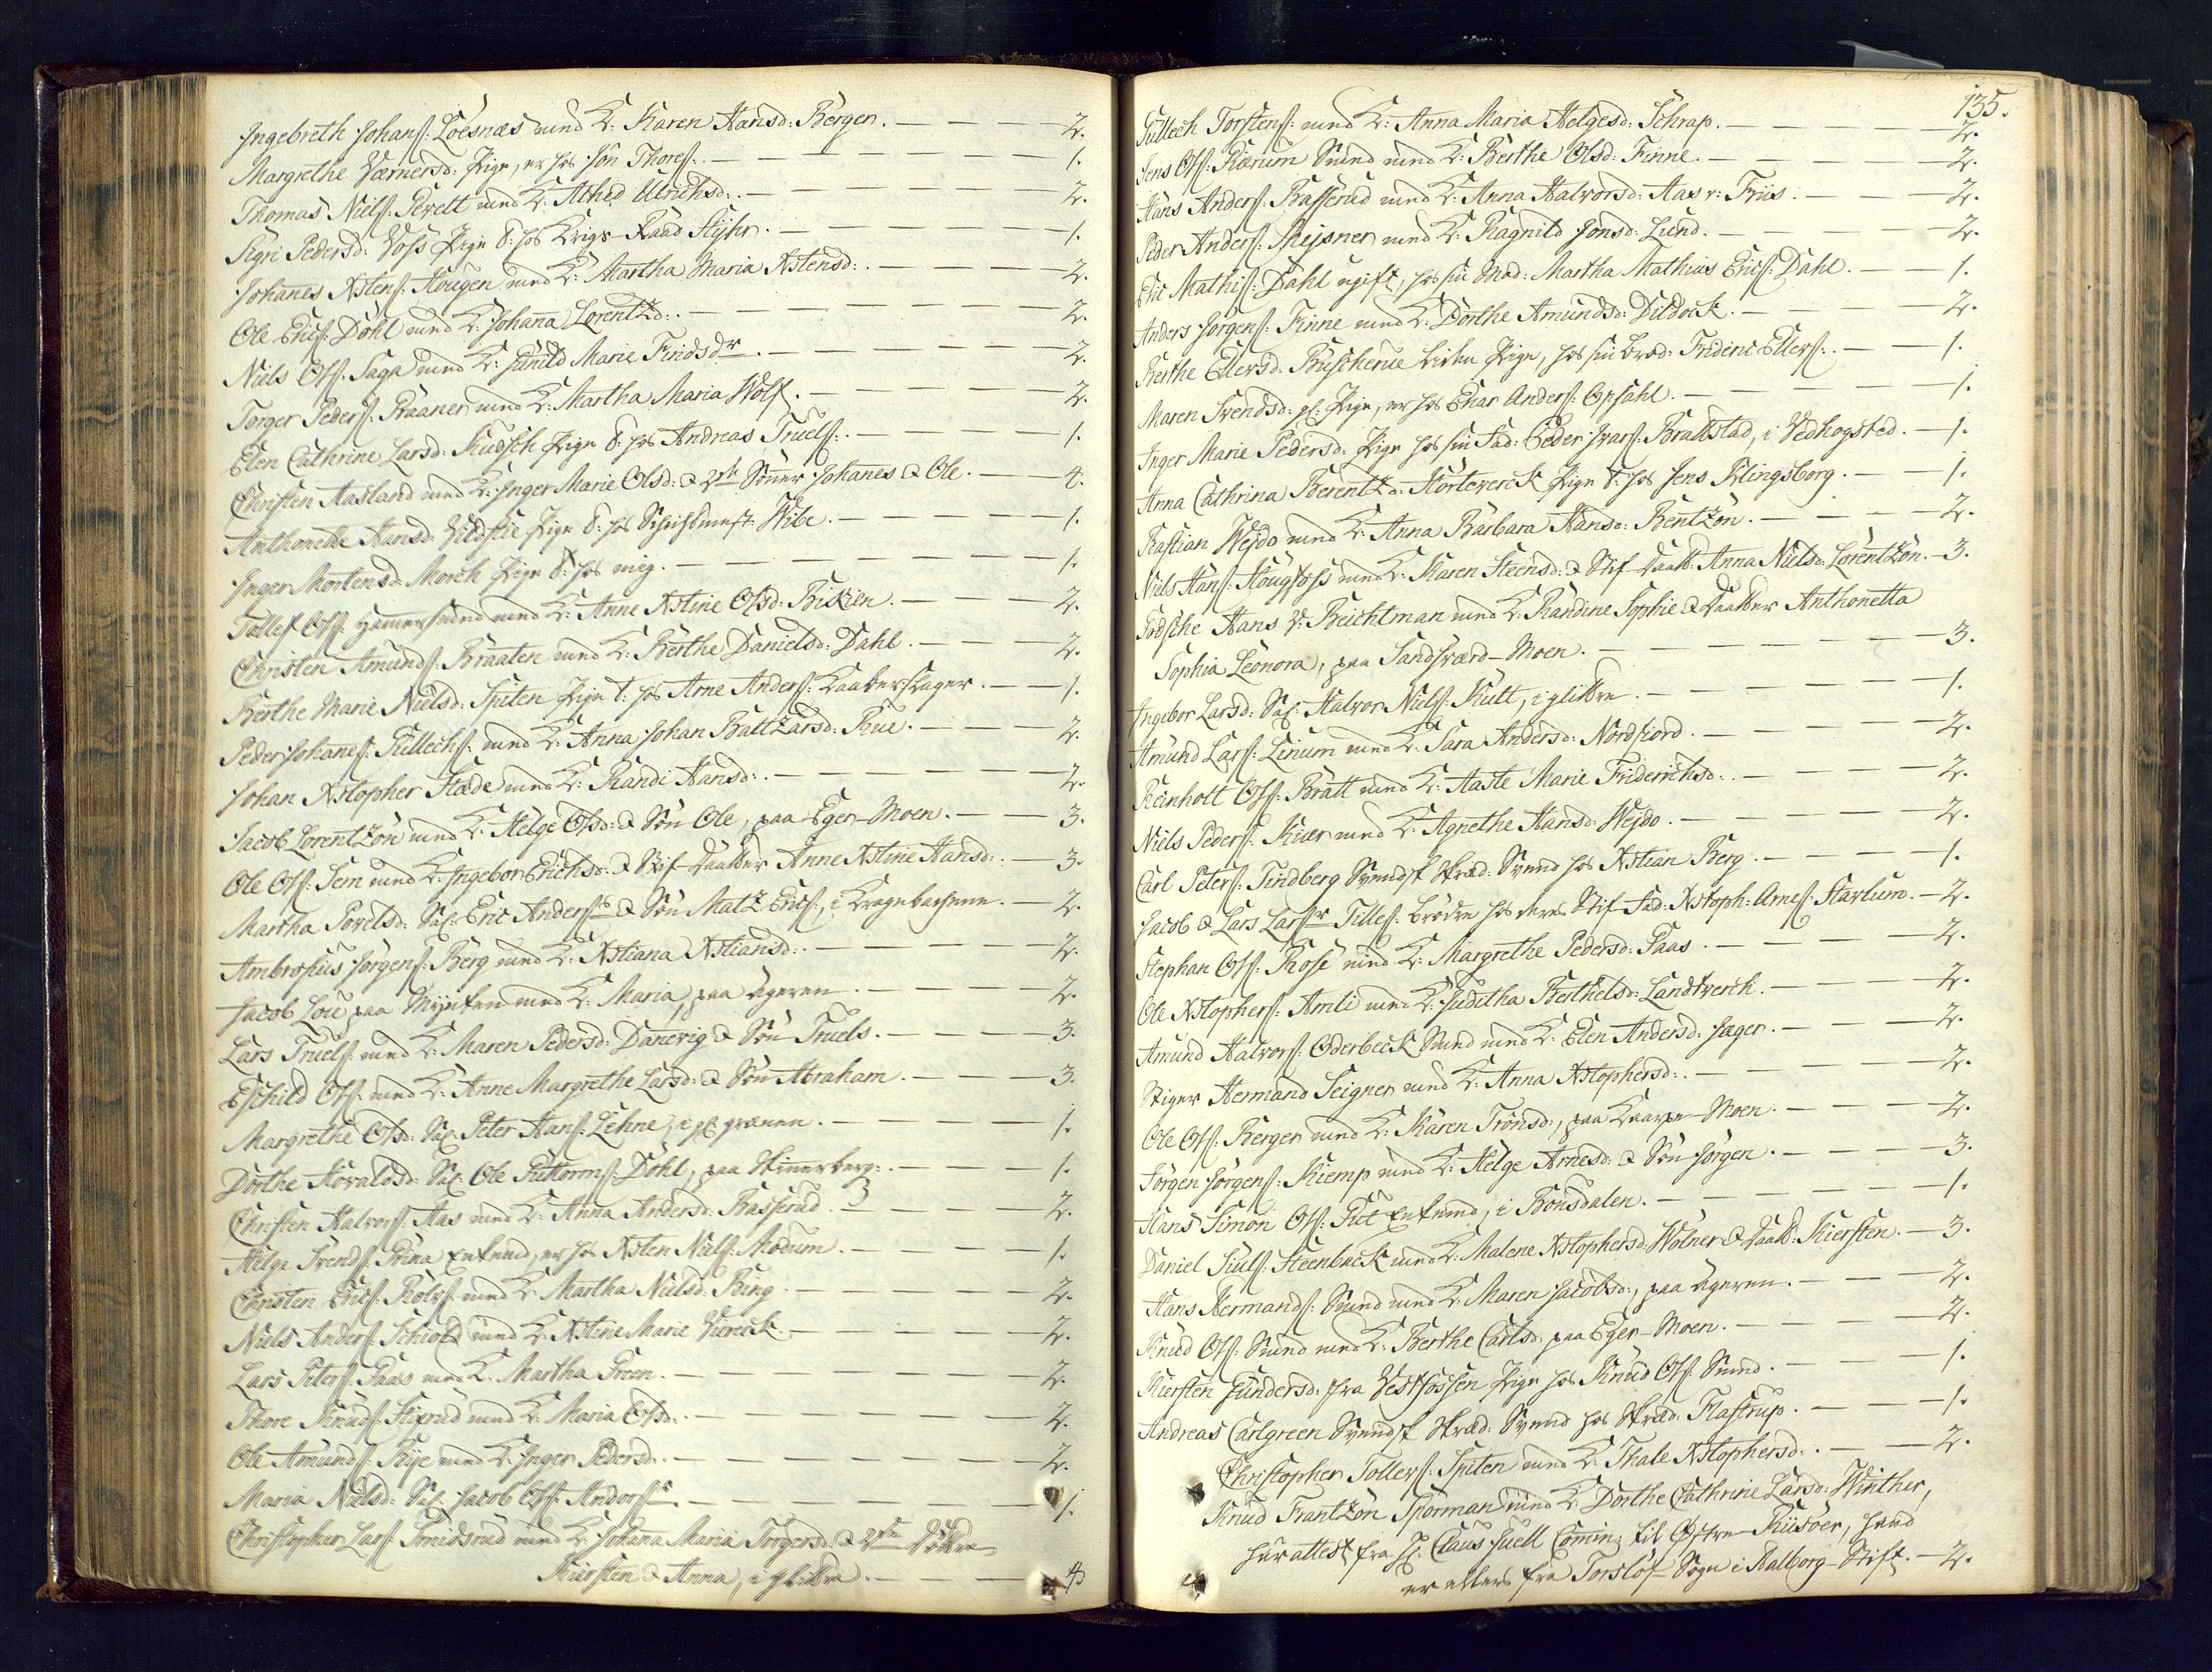 Ingebreth Johanss: Loesnæs med K: Karen Hansd: Bergen. — 2.
Margrethe Værnersd: Pige, er hos Jon Thoress: — 1.
Thomas Nielss: Perett med K: Athed Ulrichsd: — 2.
Sigri Pedersd: Voss Pige t: hos Krigs-Raad Stijhr. — 1.
Johanes Xstenss: Hougen med K: Martha Maria Xstensd: — 2.
Ole Ericss: Dohl med K: Johana Lorentzd: — 2.
Niels Olss: Saga med K: Gunild Marie Findsdr. — 2.
Torger Pederss: Raaner med K: Martha Maria Wolf. — 2.
Elen Cathrine Larsd: Kudsch Pige t: hos Andreas Truelss: — 1.
Christen Aasland med K: Inger Marie Olsd: & 2de Sönner Johanes & Ole — 4.
Anthonethe Hansd: Vildstie Pige t: hos Wibe. — 1.
Inger Mortensd: Morch Pige t: hos mig. — 1.
Tollef Olss: Hamersund med K: Anne Xstine Olsd: — 2.
Christen Amundss: Braaten med K: Berthe Danielsd: Dahl. — 2.
Berthe Marie Nielsd: Spiten Pige t: hos Arne Anderss: — 1.
Peder Johaness: Tullechs: med K: Anna Johan Baltzarsd: Rue. — 2.
Johan Xstopher Hæde med K: Randi Hansd: — 2.
Jacob Lorentzon med K: Helge Olsd: & Sön Ole, paa Eger-Moen. — 3.
Ole Olss: Sem med K: Ingebor Erichsd: & Stif Daatter Anne Xstine Hansd: — 3.
Martha Povelsd: Sal: Eric Anderss & Sön Matz Ericss:, i — 2.
Ambrosius Jorgenss: Berg med K: Xstiana Xstiansd: — 2.
Jacob Lou paa Mynten med K: Maria, paa Ageren — 2.
Lars Truelss: med K: Maren Pedersd: Danevig & Sön Truels. — 3.
Eschild Olss: med K: Anne Margrethe Larsd: & Sön Abraham. — 3.
Margrethe Olsd: Sal: Peter Hanss: Lehne, i — 1.
Dorthe Havaldsd: Sal: Ole Guttormss: Dohl, paa — 1.
Christen Halvorss: Aas med K: Anna Andersd: Basserud. — 2.
Helge Svendss: Enkemd, er hos Xsten Nielss: Modum. — 1.
Christen Ericss: Rolvs: med K: Martha Nielsd: Ring. — 2.
Niels Anderss: Schiold med K: Xstine Marie Viereck. — 2.
Lars Peterss: Paas med K: Martha Green. — 2.
Thore Knudss: Stigrud med K: Maria Olsd: — 2.
Ole Amundss: Rye med K: Inger Pedersd: — 2.
Maria Nielsd: Sal: Jacob Olss: — 1.
Christopher Larss: Smidsrud med K: Johana Maria Torgersd: & 2de Döttre
Kiersten & Anna, i glittre. — 4.
135.
Tullech Torstenss: med K: Anna Maria Helgesd: Schrap. — 2.
Jens Olss: Kærum Smed med K: Berthe Olsd: Finne. — 2.
Hans Anderss: Basserud med K: Anna Halvorsd: Aas v: Friis. — 2.
Peder Anderss: Meisner med K: Ragnild Jonsd: Lund. — 2.
Eric Mathiss: Dahl ugift, hos sin Mod: Martha Mathias Ericss: Dahl. — 1.
Anders Jorgenss: Finne med K: Dorthe Amundsd: Dildock. — 2.
Berthe Ellersd: Pige, hos sin brod: Frideric Ellerss: — 1.
Maren Svendsd: gl: Pige, er hos Ehar Anderss: Opsahl. — 1.
Inger Marie Pedersd: Pige hos sin Fad: Peder Ivarss: Brattstad, i Vedhogsted. — 1.
Anna Cathrina Berentzd: Hortewerck Pige t: hos Jens Klingsborg. — 1.
Bastian Wejdo med K: Anna Barbara Hansd: Bentzon. — 2.
Niels Hanss: Hougfoss med K: Karen Steensd: & Stif Daatt: Anna Nielsd: Lorentzon. — 3.
Hans V: Beichtman med K: Randine Sophie & Daatter Anthonetta
Sophia Leonora, paa Sandsværd-Moen. — 3.
Ingebor Larsd: Sal: Halvor Nielss: Kult, i glittre. — 1.
Amund Larss: Linum med K: Sara Andersd: Nordfiord. — 2.
Reinholt Olss: Bratt med K: Aaste Marie Friderichsd: — 2.
Niels Pederss: Kiær med K: Agnethe Hansd: Wejdo. — 2.
Carl Peterss: Lindberg Svendsk Skræd: Svend hos Xstian Berg. — 1.
Jacob & Lars Larssr Tilless: brödre hos deres Stif-Fad: Xstoph: Arness: Starlum. — 2.
Stephan Olss: Rose med K: Margrethe Pedersd: Paas. — 2.
Ole Xstopherss: Amli med K: Juditha Berthelsd: Landtverch. — 2.
Amund Halvorss: Oderbeck Smed med K: Elen Andersd: Jæger. — 2.
Stiger Hermand Seigner med K: Anna Xstophersd: — 2.
Ole Olss: Berger med K: Karen Tronsd:, paa Moen. — 2.
Jörgen Jorgenss: Kiemp med K: Helge Arnesd: & Sön Jörgen. — 3.
Hans Simon Olss: Enkemd, i Bonsdalen. — 1.
Daniel Siulss: Steenbeck med K: Malene Xstophersd: Wolner & Daatt: Kiersten. — 3.
Hans Hermandss: Smed med K: Maren Jacobsd:, paa Ageren. — 2.
Knud Olss: Smed med K: Berthe Carlsd: paa Eger-Moen. — 2.
Kiersten Gundersd: fra Vestfossen Pige hos Knud Olss: Smed. — 1.
Andreas Carlgreen Svendsk Skræd: Svend hos Skræd: Flastrup. — 1.
Christopher Tollevs: Spiten med K: Thale Xstophersd: — 2.
Knud Frantzon Sporman med K: Dorthe Cathrine Larsd: Winther,
har attest fra Hr: Claus Juell til Østre-Riisöer, hand
er ellers fra Torslöf-Sogn i Aalborg-Stift. — 2.